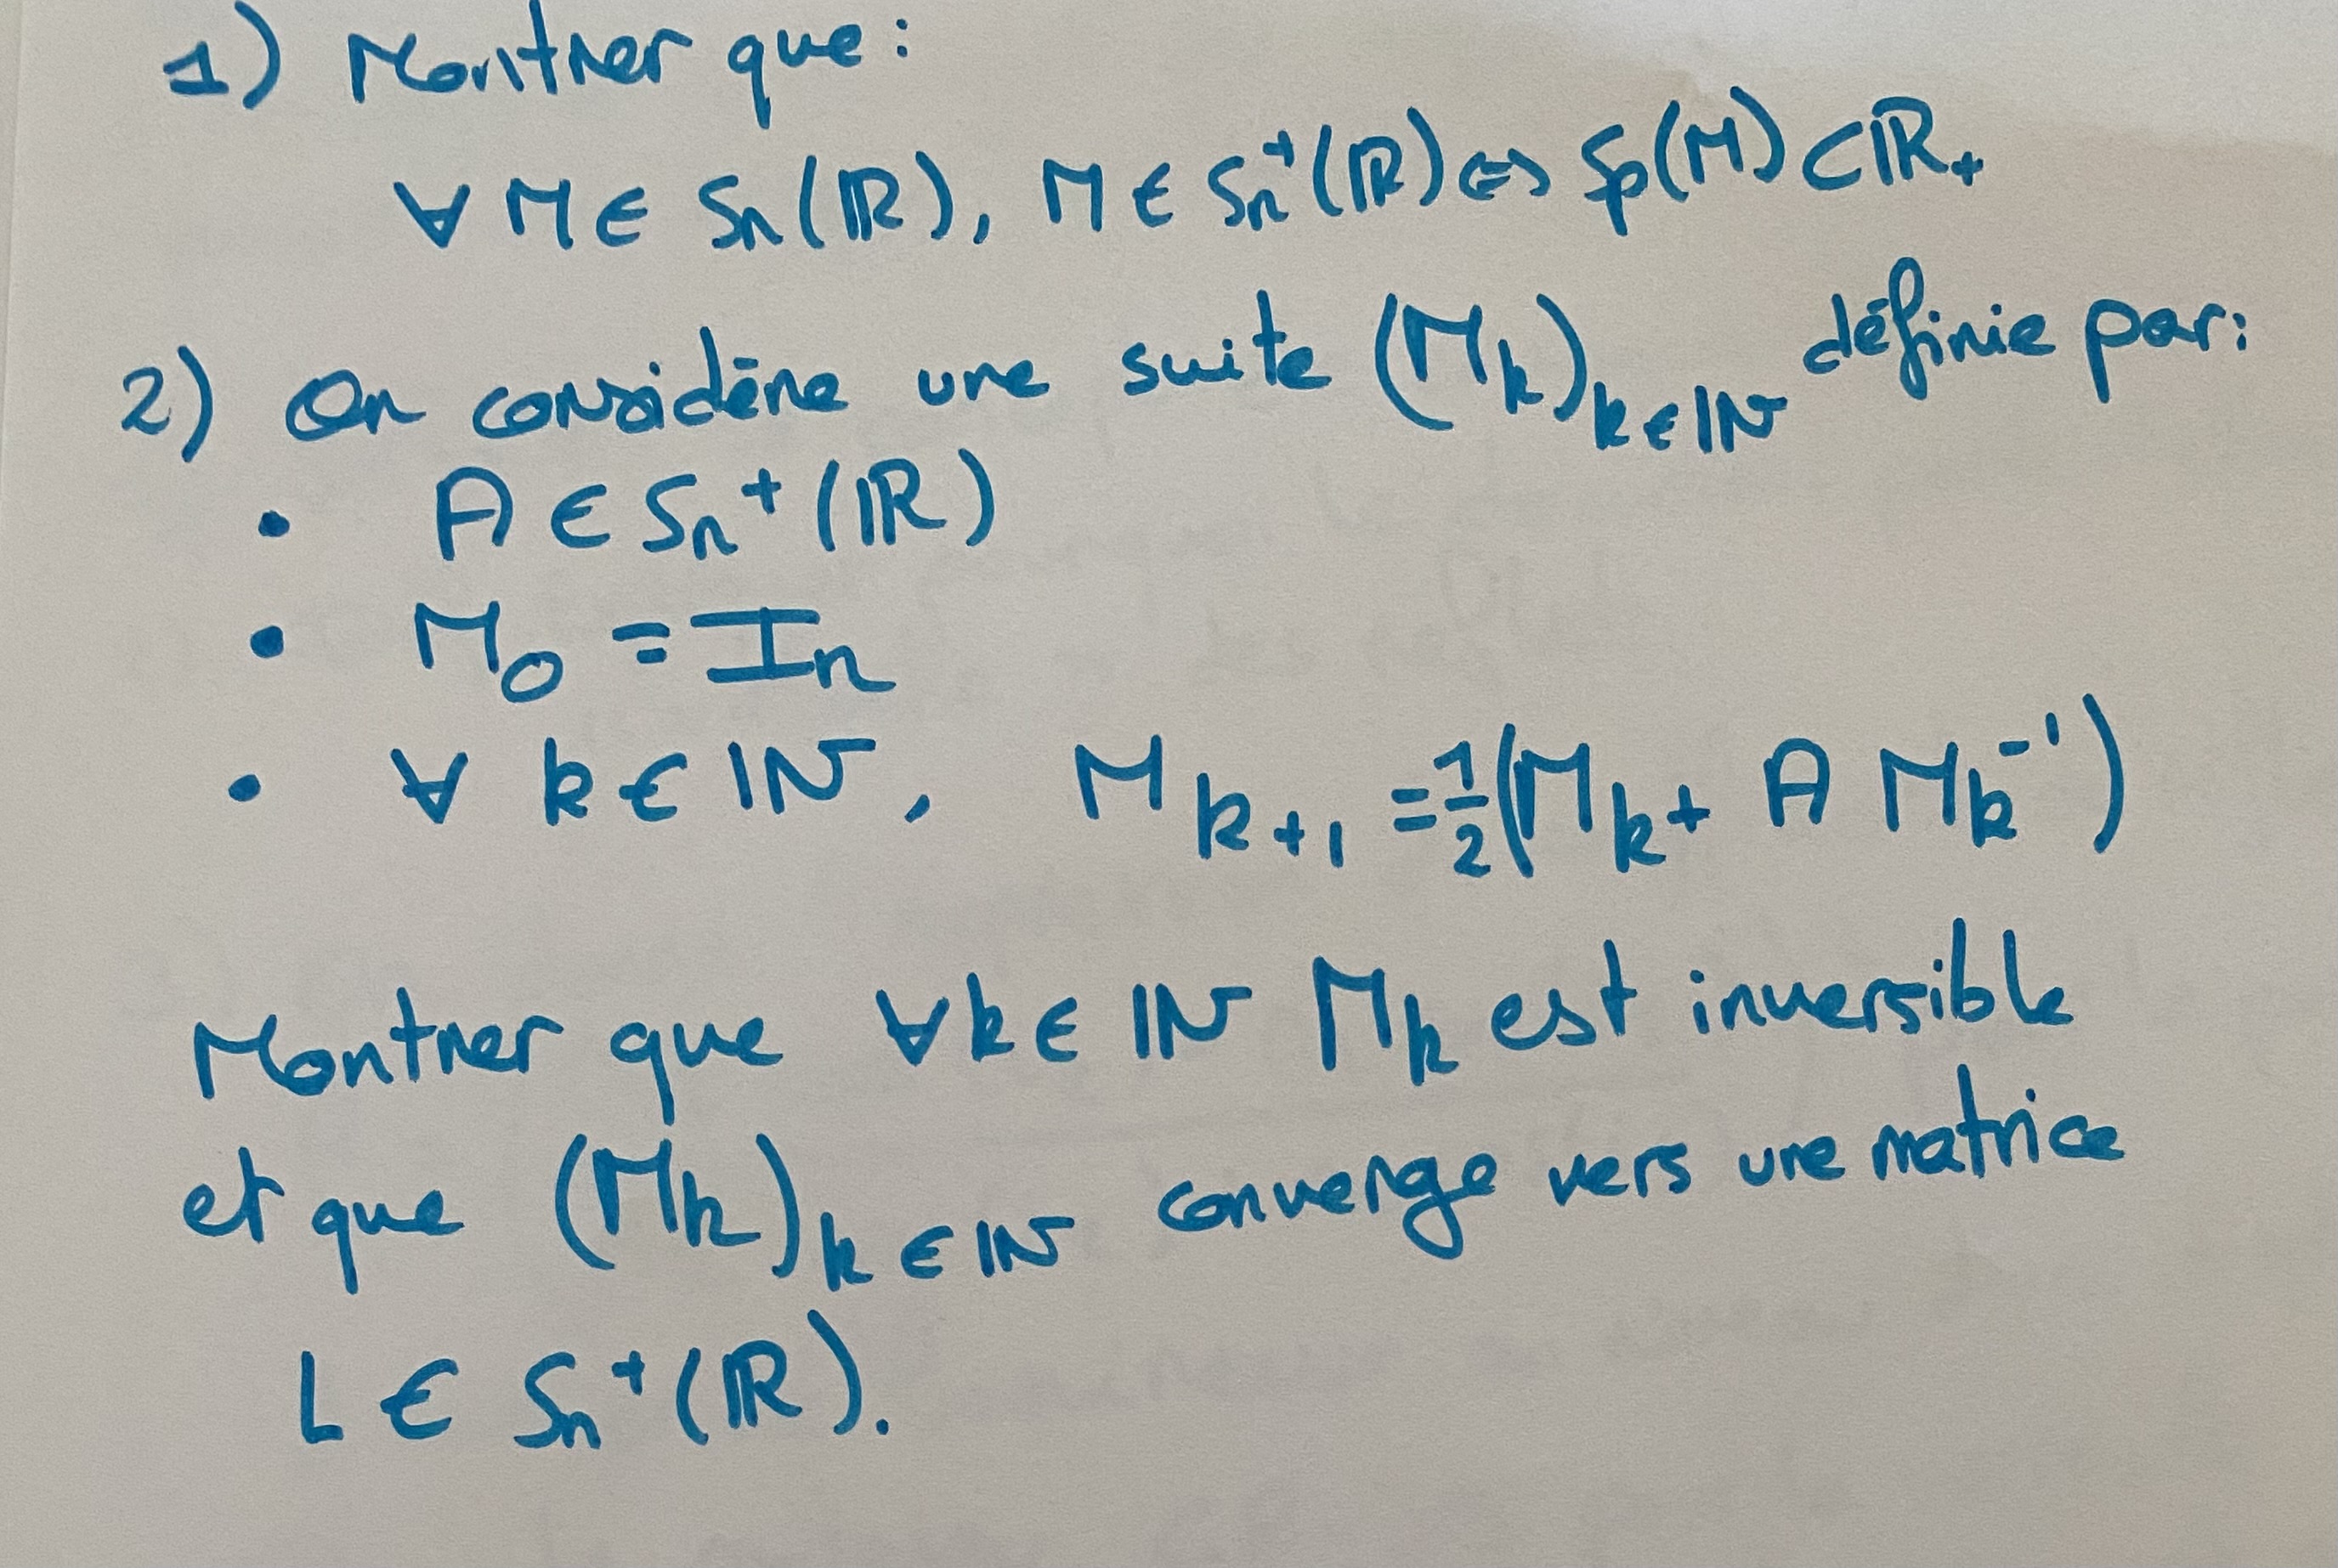 1) Montrer que :
∀ M ∈ Sn(ℝ), M ∈ Sn⁺(ℝ) ⇔ Sp(M) ⊂ ℝ₊
2) On considère une suite (Mk)k∈ℕ définie par :
• A ∈ Sn⁺(ℝ)
• M₀ = In
• ∀ k ∈ ℕ, Mk+1 = 1/2 (Mk + A Mk⁻¹)
Montrer que ∀ k ∈ ℕ Mk est inversible
et que (Mk)k∈ℕ converge vers une matrice
L ∈ Sn⁺(ℝ).